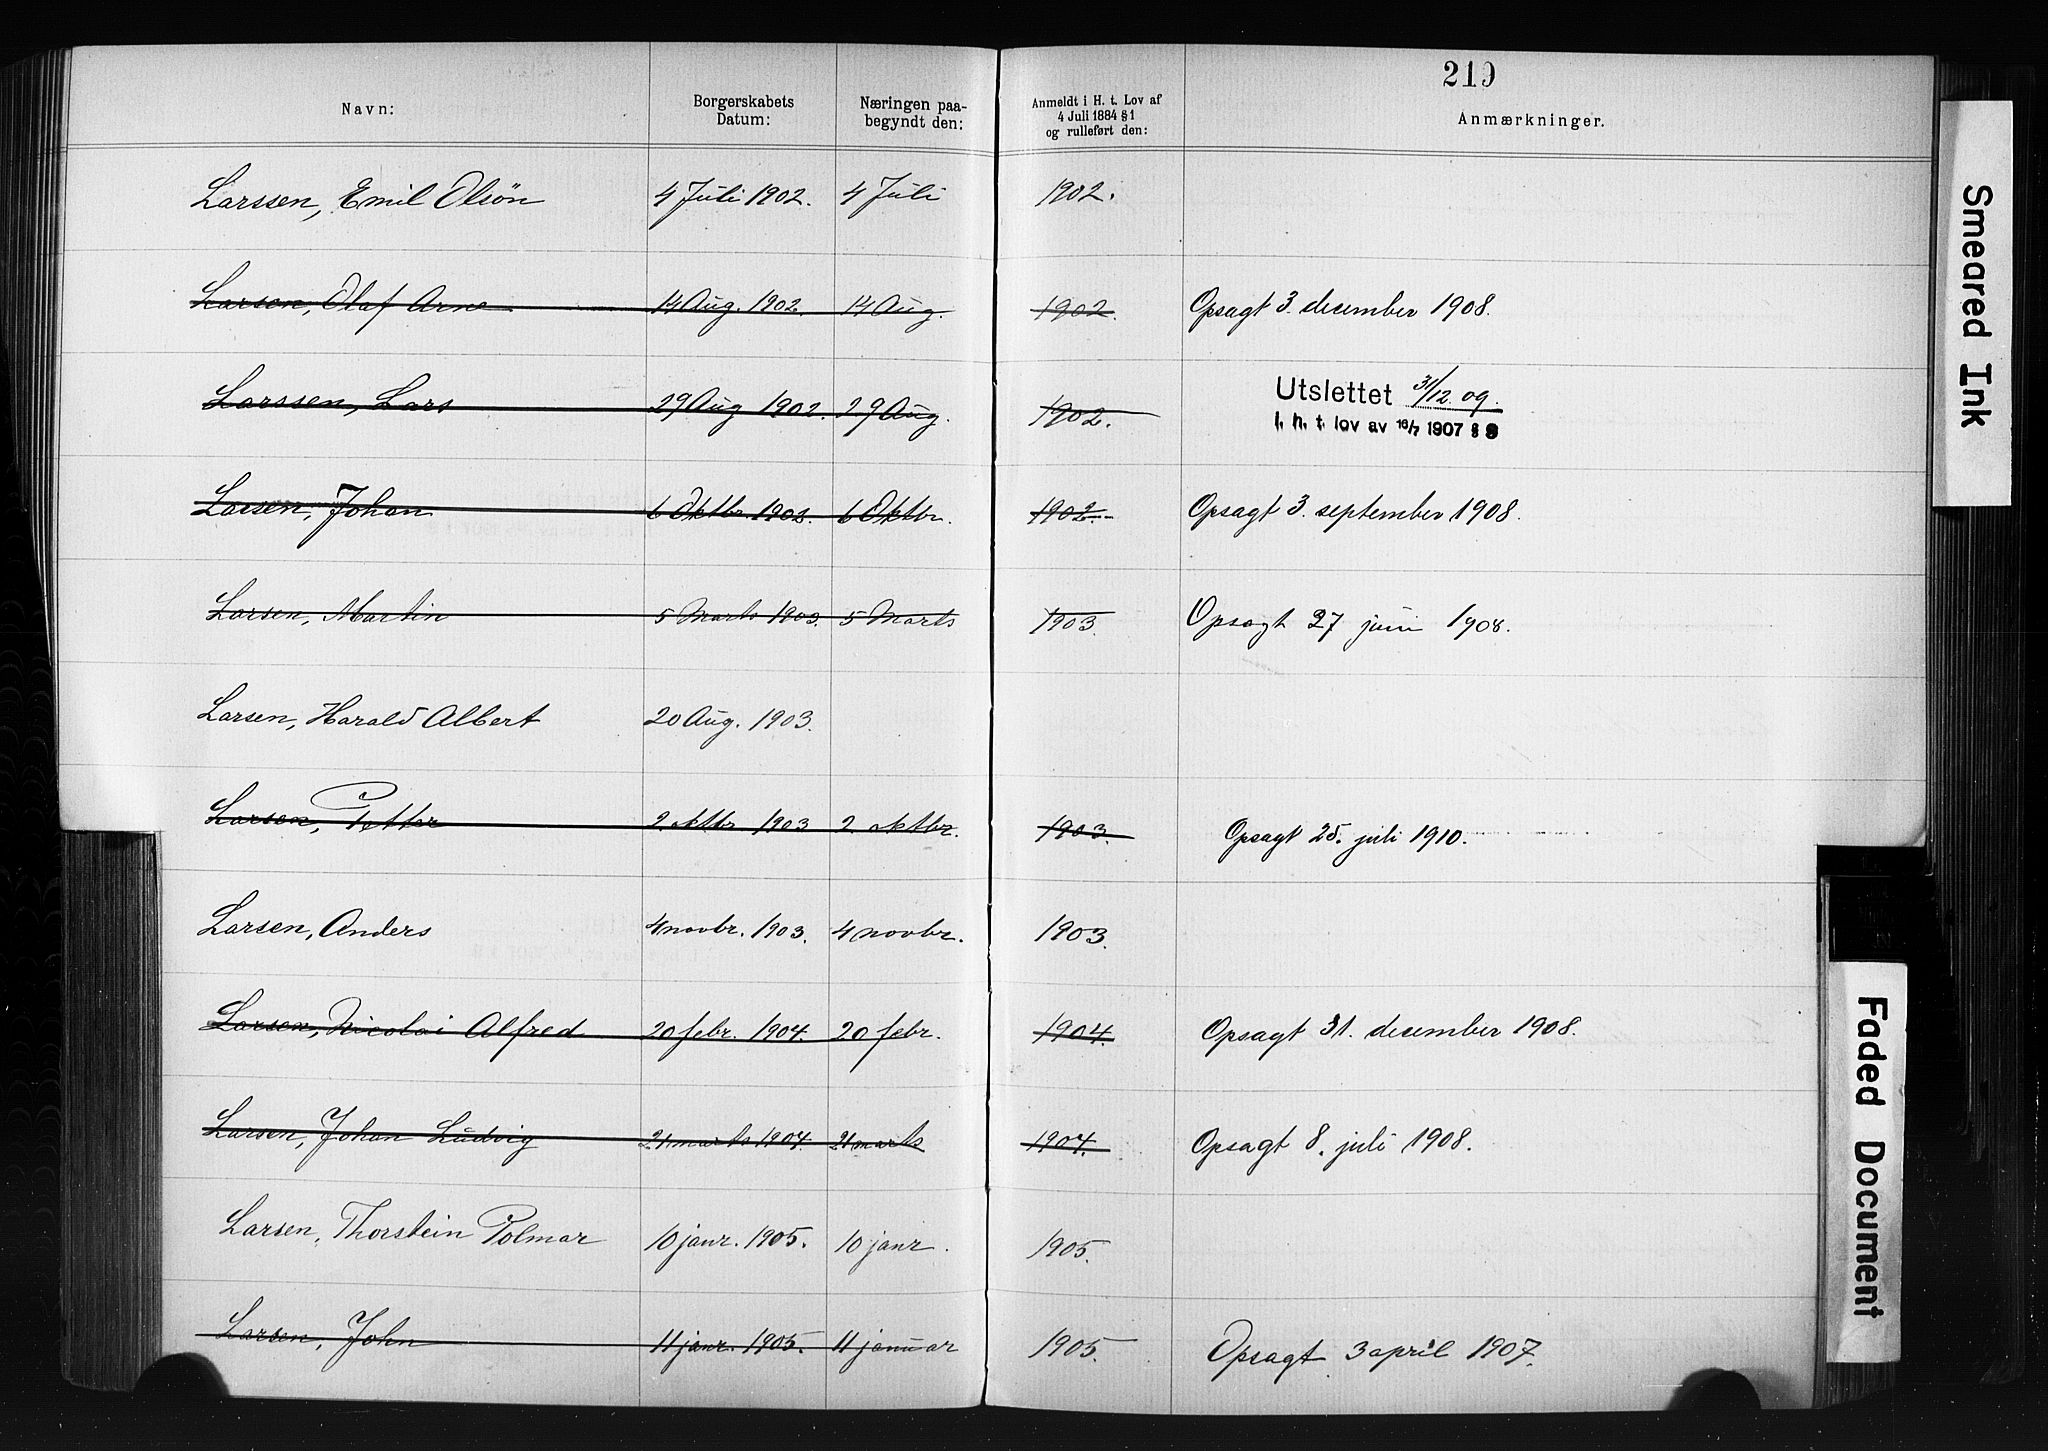 219
Navn: Borgerskabets Datum: Næringen paa-begyndt den: Anmeldt i H. t. Lov af 4 Juli 1884 § 1 og rulleført den: Anmærkninger.
Larssen, Emil Olsön 4 Juli 1902. 4 Juli 1902.
Larsen, Olaf Arne 14 Aug. 1902. 14 Aug. 1902. Opsagt 3. december 1908.
Larssen, Lars 29 Aug 1902. 29 Aug. 1902. Utslettet 31/12 09.
I. h. t. lov av 16/7 1907 §
Larsen, Johan 6 Oktbr. 1902. 6 Oktbr. 1902. Opsagt 3. september 1908.
Larsen, Martin 5 Marts 1903. 5 Marts 1903. Opsagt 27 juni 1908.
Larsen, Harald Albert 20 Aug. 1903.
Larsen, Petter 2 oktbr 1903 2 oktbr. 1903. Opsagt 25. juli 1910.
Larsen, Anders 4 novbr. 1903. 4 novbr. 1903.
Larsen, Nicolai Alfred 20 febr. 1904. 20 febr. 1904. Opsagt 31. december 1908.
Larsen, Johan Ludvig 21 marts 1904. 21 marts 1904. Opsagt 8. juli 1908.
Larsen, Thorstein Polmar 10 janr. 1905. 10 janr. 1905.
Larsen, John 11 janr. 1905. 11 januar 1905. Opsagt 3 april 1907.
Smeared Ink
Faded Document